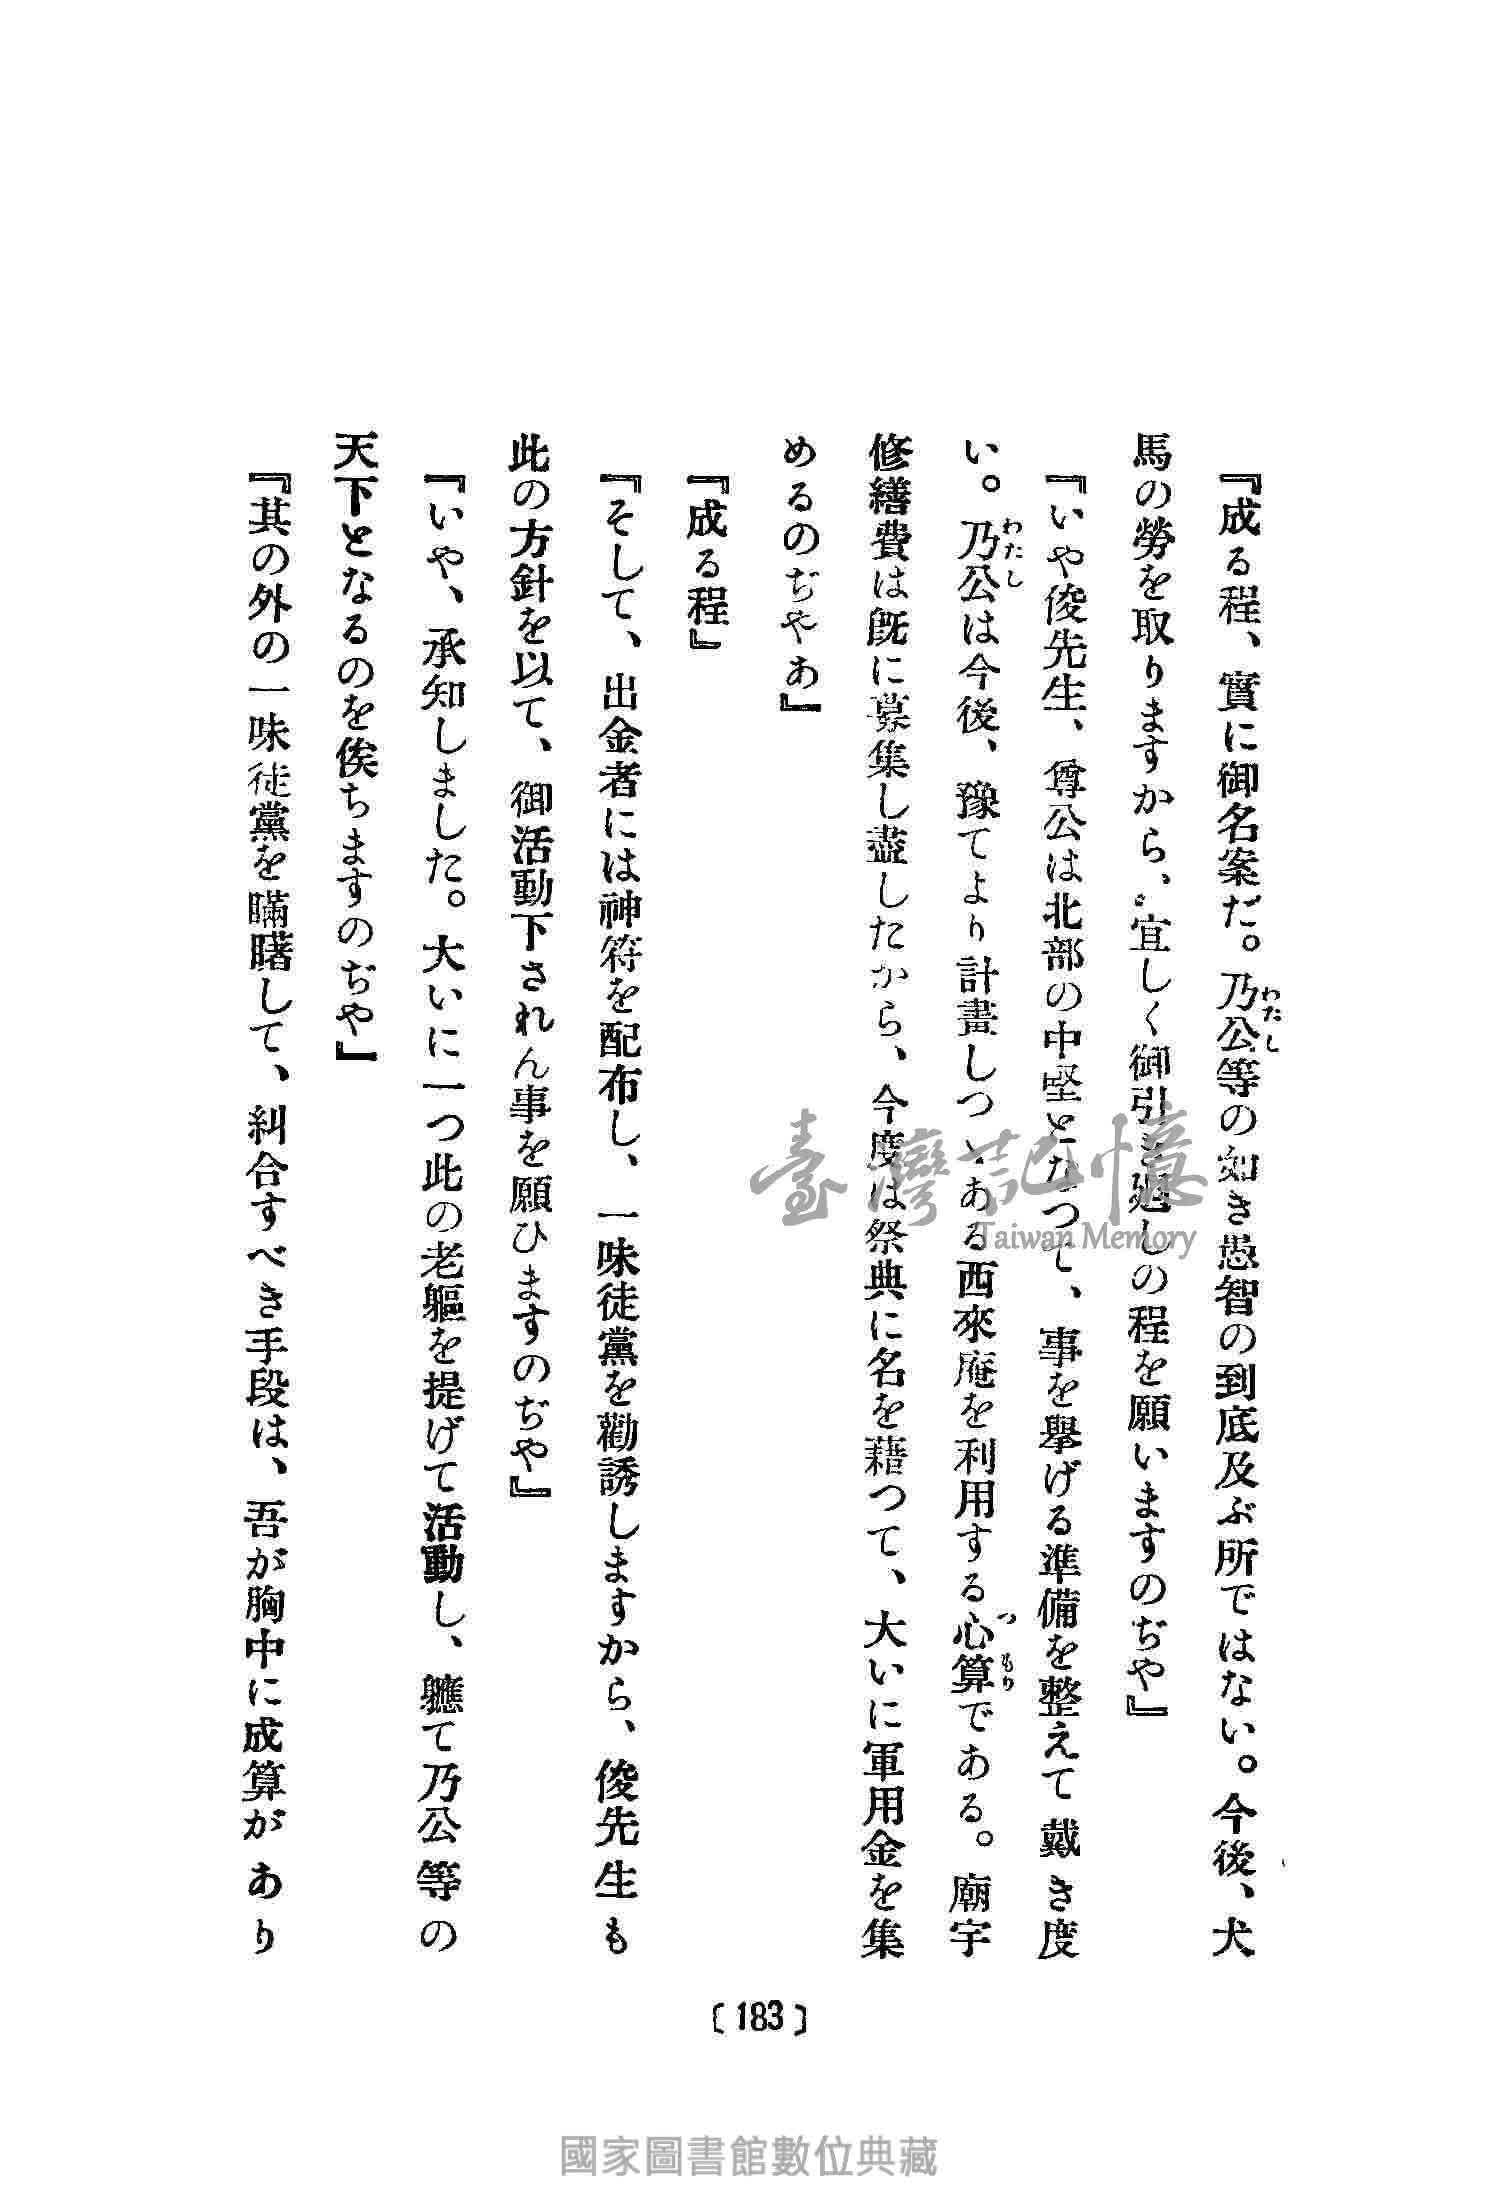 『成る程、實に御名案だ。乃公等の如き愚智の到底及ぶ所ではない。今後、犬
わたし
馬の勞を取りますから、宜しく御引き廻しの程を願いますのぢや』
『いや俊先生、尊公は北部の中堅となつて、事を擧げる準備を整えて戴き度
い。乃公は今後、豫てより計畫しつゝある西來庵を利用する心算である。廟宇
わたし
つもり
修繕費は既に募集し盡したから、今度は祭典に名を藉つて、大いに軍用金を集
めるのぢやあ』
『成る程』
『そして、出金者には神符を配布し、一味徒黨を勸誘しますから、俊先生も
此の方針を以て、御活動下されん事を願ひますのぢや』
『いや、承知しました。大いに一つ此の老軀を提げて活動し、軈て乃公等の
天下となるのを俟ちますのぢや』
『其の外の一味徒黨を瞞曙して、糾合すべき手段は、吾が胸中に成算があり
(183)
臺灣記憶
Taiwan Memory
國家圖書館數位典藏